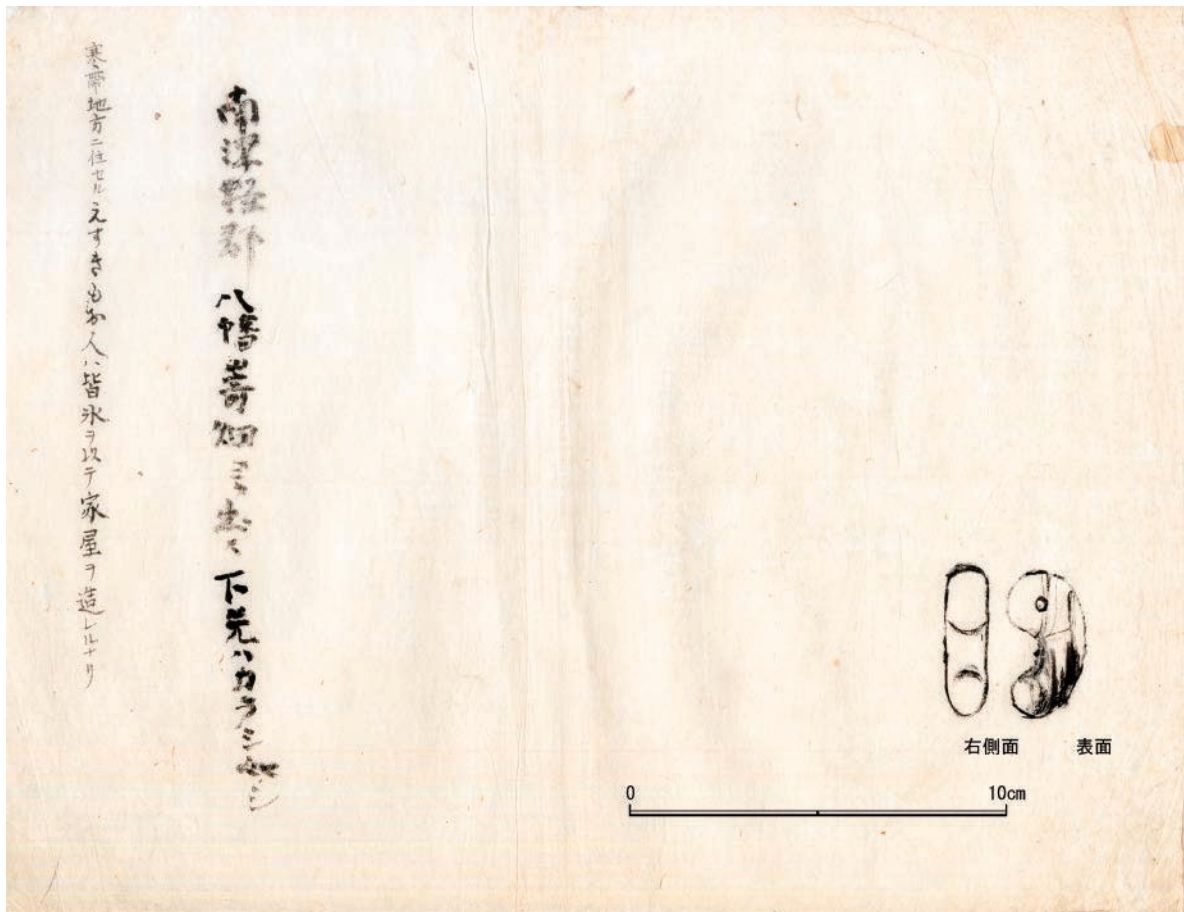 右側面 表面
0 10cm
南津軽郡 八幡嵜畑 下 ハカラシ如シ
寒帯地方ニ住セルえすきもお人ハ皆氷ヲ以テ家屋ヲ造レルナリ